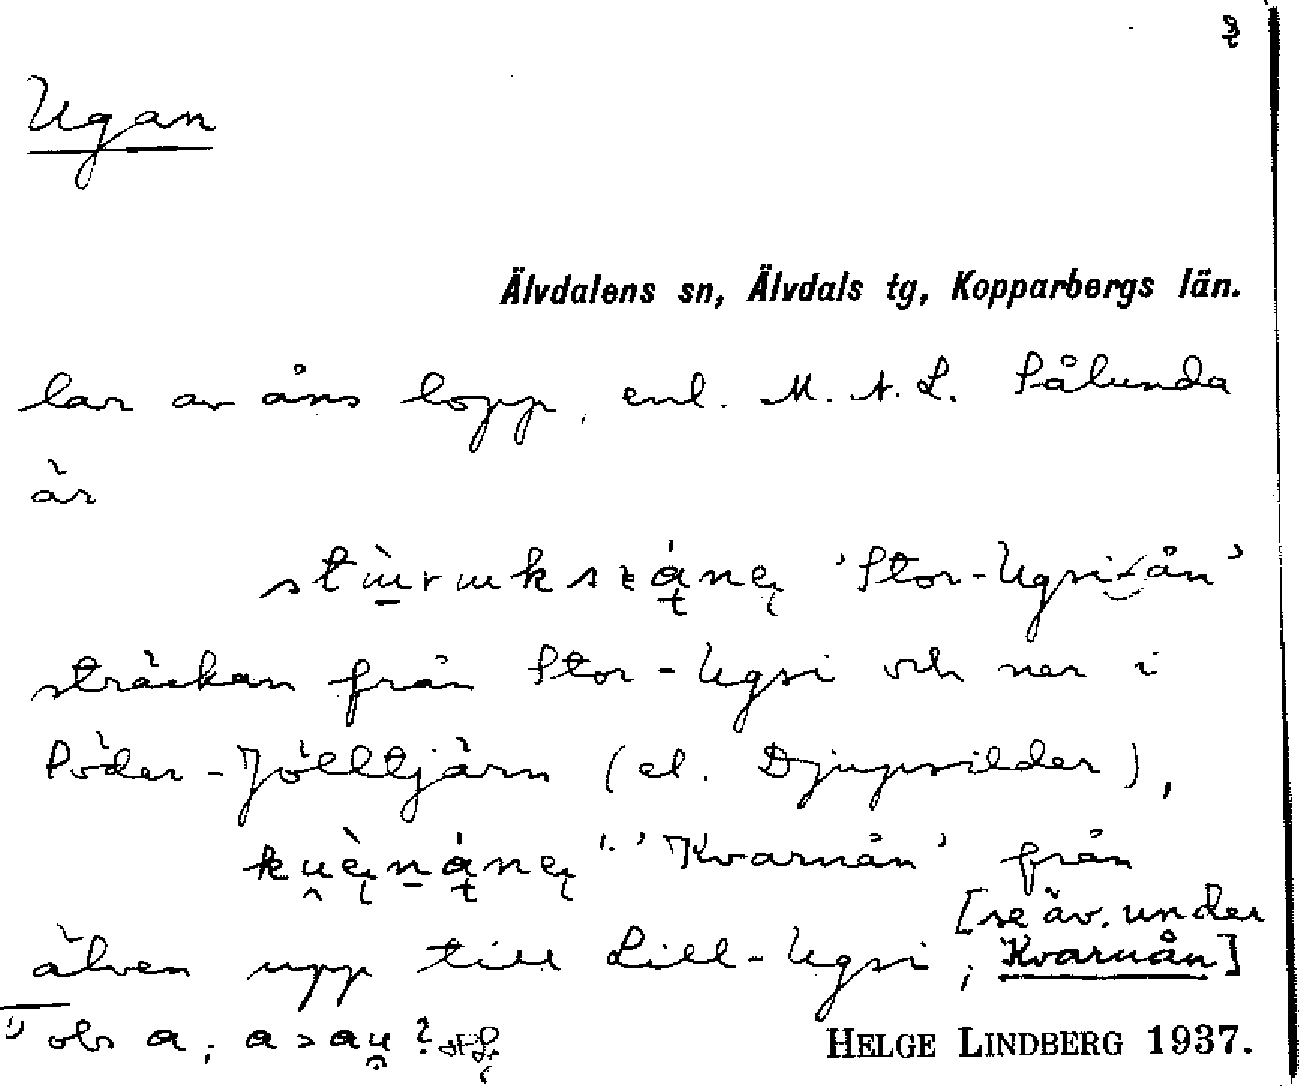 Ugan
Älvdalens sn, Älvdals tg, Kopparbergs län.
lar av åns lopp, enl. M. A. L. Sålunda
är
'Stor-Ugsi-ån'
sträckan från Stor-Ugsi och ner i
Söder-Jölltjärn (el. Djupsilder),
'Kvarnån' från
[se äv. under
älven upp till Lill-Ugsi, Kvarnån]
obs a; a > au̯?
HELGE LINDBERG 1937.